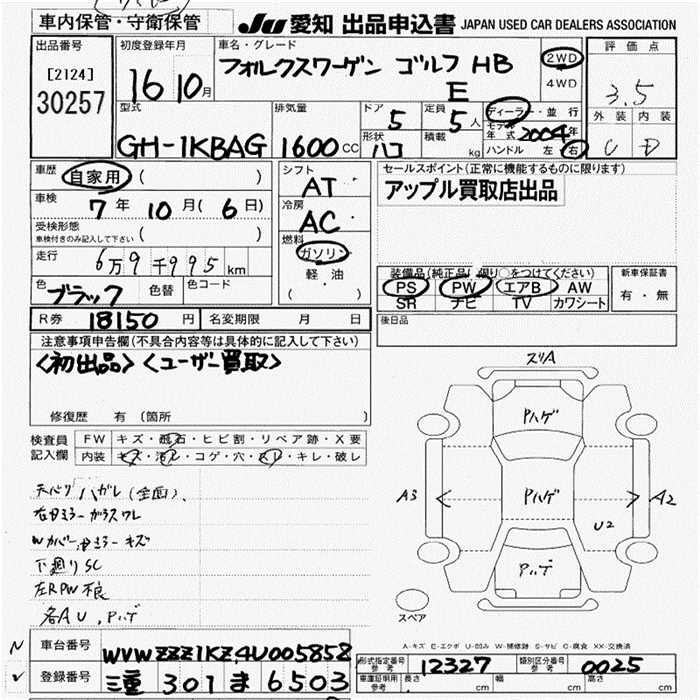 車内保管・守衛保管
JU 愛知 出品申込書 JAPAN USED CAR DEALERS ASSOCIATION
出品番号
[2124]
30257
初度登録年月
16 10月
車名・グレード
フォルクスワーゲン ゴルフ HB
E
2WD
4WD
評価点
3.5
外装 内装
C D
型式
GH-1KBAG
排気量
1600 cc
ドア
5
形状
ハコ
定員
5人
積載
kg
ディーラー・並行
モデル年式 2004年
ハンドル 左・右
車歴
自家用 ( )
車検
7年 10月 ( 6日)
受検形態
車検付きのみ記入して下さい ( )
走行
6万9千995km
色
ブラック
色替
色コード
シフト
AT
冷房
AC
燃料
ガソリン
軽・油
( ・ )
セールスポイント(正常に機能するものに限ります)
アップル買取店出品
装備品(純正品に限り○をつけてください)
PS PW エアB AW
SR ナビ TV カワシート
新車保証書
有・無
R券 18150円
名変期限 月 日
後日品
注意事項申告欄(不具合内容等は具体的に記入して下さい)
<初出品> <ユーザー買取>
修復歴 有 (箇所 )
検査員
記入欄
FW キズ・飛石・ヒビ割・リペア跡・X要
内装 キズ・汚レ・コゲ・穴・スレ・キレ・破レ
天バリハガレ(全面)、
右ドミラーガラスワレ
Wカバー、ドミラーキズ
下廻りSC
左RPW不良
各AU、Pハゲ
スリA
Pハゲ
A3
Pハゲ
A2
U2
Pハゲ
スペア
A-キズ E-エクボ U-凹み W-補修跡 S-サビ C-腐食 XX-交換済
車台番号
WVWZZZ1KZ4U005858
登録番号
三重 301 ま 6503
形式指定番号
参考
12327
類別区分番号
参考
0025
車庫証明用
参考
長さ cm 幅 cm 高さ cm